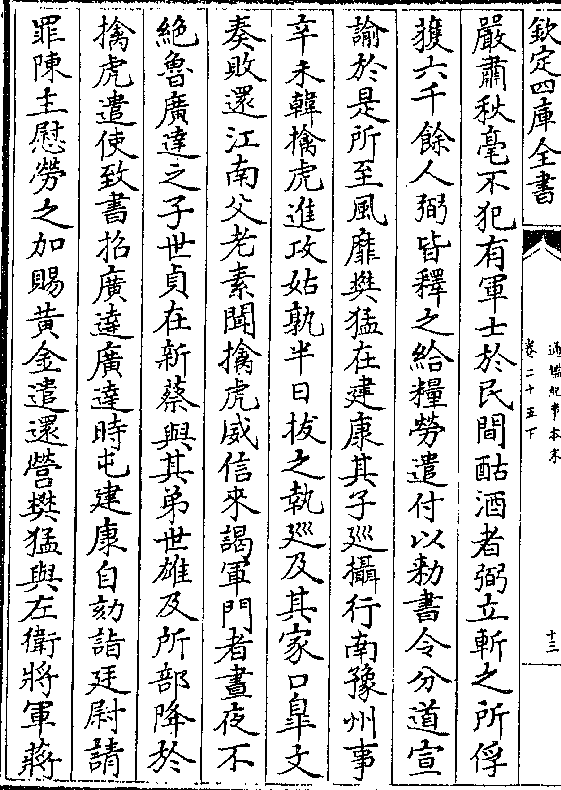 欽定四庫全書
通鑑紀事本末
卷二十五下
十三
嚴肅秋毫不犯有軍士於民間酤酒者弼立斬之所俘
獲六千餘人弼皆釋之給糧勞遣付以勅書令分道宣
諭於是所至風靡樊猛在建康其子巡攝行南豫州事
辛未韓擒虎進攻姑孰半日拔之執巡及其家口臯文
奏敗還江南父老素聞擒虎威信來謁軍門者晝夜不
絶魯廣達之子世貞在新蔡與其弟世雄及所部降於
擒虎遣使致書招廣達廣達時屯建康自劾詣廷尉請
罪陳主慰勞之加賜黄金遣還營樊猛與左衛將軍蔣